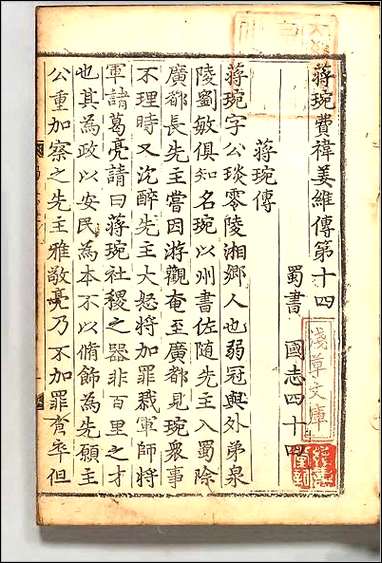 蔣琬費禕姜維傳第十四
蜀書 國志四十四
蔣琬傳
蔣琬字公琰零陵湘鄉人也弱冠與外弟泉
陵劉敏俱知名琬以州書佐隨先主入蜀除
廣都長先主嘗因游觀奄至廣都見琬衆事
不理時又沈醉先主大怒將加罪戮軍師將
軍諸葛亮請曰蔣琬社稷之器非百里之才
也其為政以安民為本不以脩飾為先願主
公重加察之先主雅敬亮乃不加罪倉卒但
淺草文庫